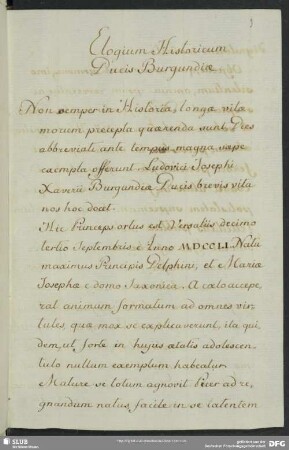 Elogium Historicum
Ducis Burgundiæ
Non semper in Historia, longæ vitæ
morum precepta quærenda sunt, Dies
abbreviati ante tempus magna sæpe
exempla offerunt. Ludovici Josephi
Xaverii Burgundiæ Ducis brevis vita
nos hoc docet.
Hic Princeps ortus est Versaliis decimo
tertio Septembris Anno MDCCLI. Natu
maximus Principis Delphini, et Mariæ
Josephæ e domo Saxonica. A cælo accepe
rat animum formatum ad omnes vir
tutes, quæ mox se explicaverunt, ita qui
dem ut forte in hujus ætatis adolescen
tulo nullum exemplum habeatur
Mature se totum agnovit Puer ad re
gnandum natus, facile in se latentem
SLUB
DFG